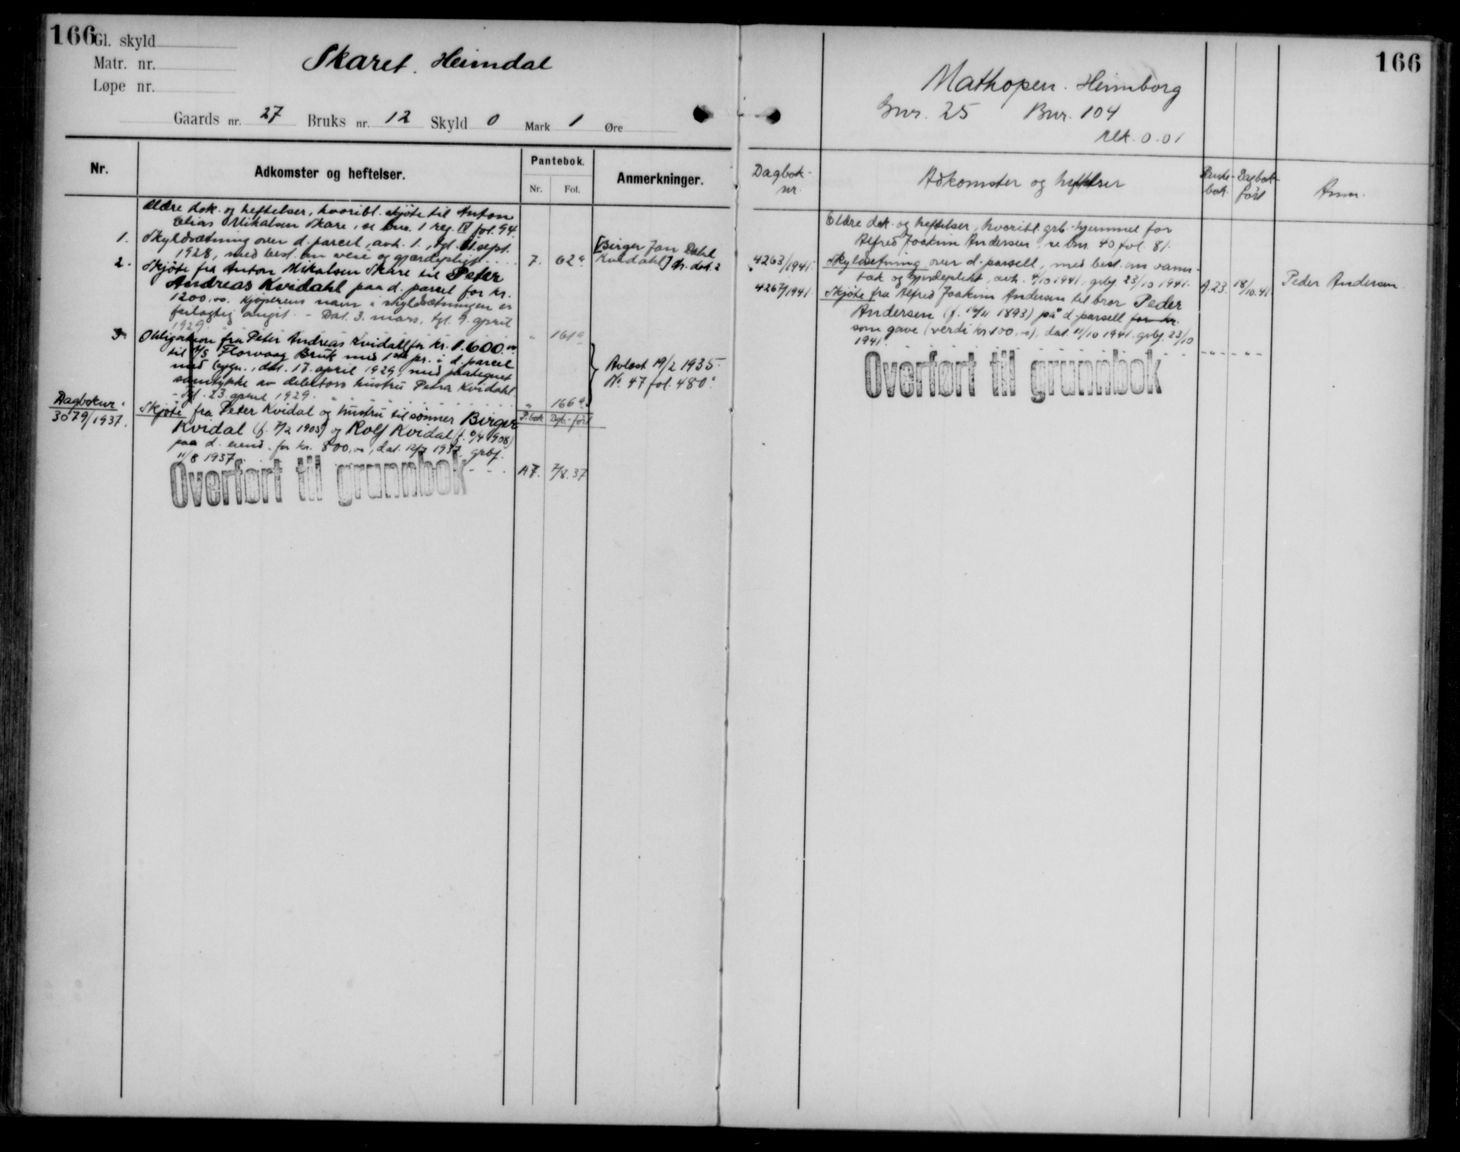 166
Gl. skyld
Matr. nr.
Løpe nr.
Skaret. Heimdal
Gaards nr. 27 Bruks nr. 12 Skyld 0 Mark 1 Øre
Nr.
Adkomster og heftelser.
Pantebok.
Nr. Fol.
Anmerkninger.
Eldre dok. og heftelser, hvoribl. skjøte til Anton
Elias Mikalsen Skare, se bnr. 1 reg. IV fol. 94.
1. Skyldsætning over d. parcel, avh. 1., tgl. sept.
1928, med best. om veie og gjærdepligt. 7. 62
[Birger Jan Dahl
Kvidahl] dok. 2
2. Skjøte fra Anton Mikalsen Skare til Peter
Andreas Kvidahl paa d. parcel for kr.
1200,00. Kjøperens navn i skyldsætningen er
feilagtig angit. - Dat. 3. mars, tgl. 9. april
1929 " 161
3. Obligation fra Peter Andreas Kvidahl for kr. 1.600,00
til A/S Florvaag Bruk med 1ste pr. i d. parcel
med bygn., dat. 17. april 1929, med paategnet
samtykke av debitors hustru Petra Kvidahl
tgl. 23 april 1929. " 166
Avlest 19/2 1935.
Nr. 47 fol. 480.
Dagboknr.
3079/1937.
P.bok Dagb.ført
Skjøte fra Peter Kvidal og hustru til sønner Birger
Kvidal (f. 7/2 1903) og Rolf Kvidal (f. 4 1908)
paa d. eiend. for kr. 800,00, dat. 1937, grbf.
11/8 1937. A7. 7/8.37
Overført til grunnbok
166
Mathopen. Heimborg
Gnr. 25 Bnr. 104
sk. 0.01
Dagbok-
nr.
Adkomster og heftelser
Pante-
bok.
Dagbok-
ført
Anm.
Eldre dok. og heftelser, hvoribl. grb. hjemmel for
Alfred Joakim Andersen, se bnr. 40 fol. 81.
4263/1941 Skyldsetning over d. parsell, med best. om vann-
tak og gjerdeplikt, avh. 4/10 1941, grbf. 23/10 1941. A 23. 18/10.41
4267/1941 Skjøte fra Alfred Joakim Andersen til bror Peder
Andersen (f. 14/11 1893) på d. parsell for kr.
som gave (verdi kr. 100,00), dat. 11/10 1941. grbf. 23/10
1941
Peder Andersen
Overført til grunnbok